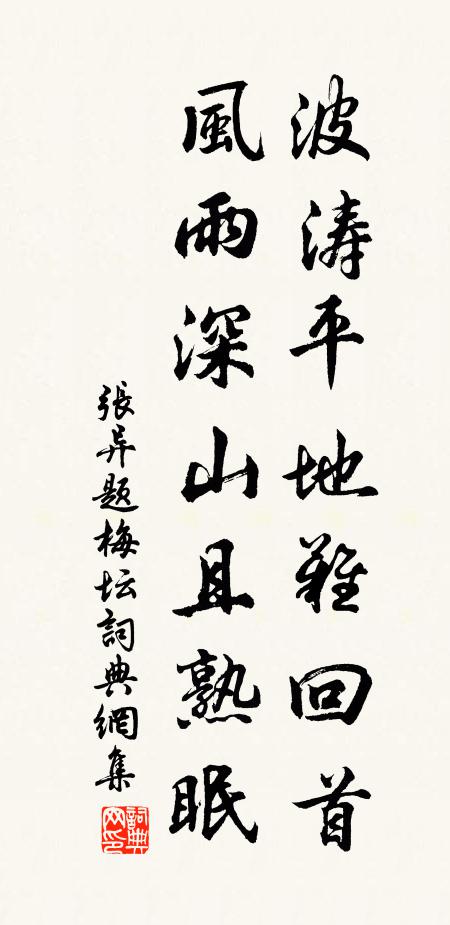 波涛平地難回首
風雨深山且熟眠
張昇題梅坛詞典網集
詞典网印